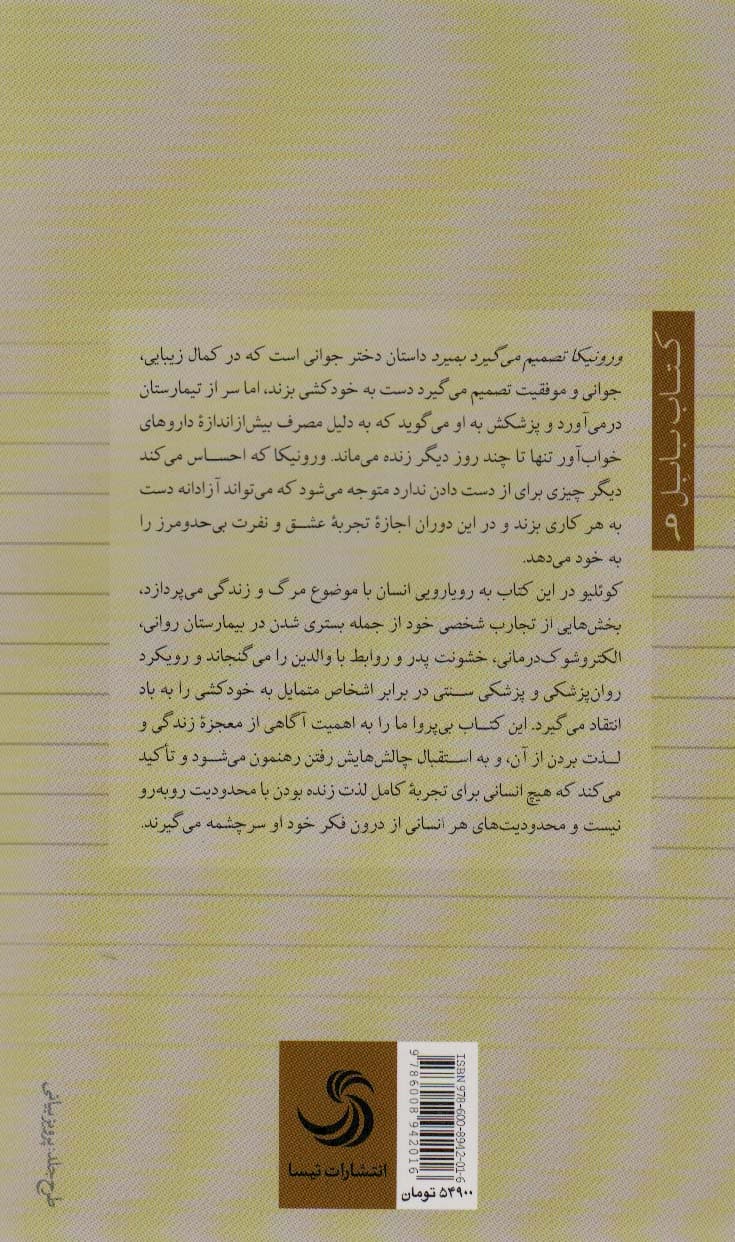 کتاب بابل ۹
ورونیکا تصمیم می‌گیرد بمیرد داستان دختر جوانی است که در کمال زیبایی،
جوانی و موفقیت تصمیم می‌گیرد دست به خودکشی بزند، اما سر از تیمارستان
درمی‌آورد و پزشکش به او می‌گوید که به دلیل مصرف بیش‌ازاندازهٔ داروهای
خواب‌آور تنها تا چند روز دیگر زنده می‌ماند. ورونیکا که احساس می‌کند
دیگر چیزی برای از دست دادن ندارد متوجه می‌شود که می‌تواند آزادانه دست
به هر کاری بزند و در این دوران اجازهٔ تجربهٔ عشق و نفرت بی‌حدومرز را
به خود می‌دهد.
کوئلیو در این کتاب به رویارویی انسان با موضوع مرگ و زندگی می‌پردازد،
بخش‌هایی از تجارب شخصی خود از جمله بستری شدن در بیمارستان روانی،
الکتروشوک‌درمانی، خشونت پدر و روابط با والدین را می‌گنجاند و رویکرد
روان‌پزشکی و پزشکی سنتی در برابر اشخاص متمایل به خودکشی را به باد
انتقاد می‌گیرد. این کتاب بی‌پروا ما را به اهمیت آگاهی از معجزهٔ زندگی و
لذت بردن از آن، و به استقبال چالش‌هایش رفتن رهنمون می‌شود و تأکید
می‌کند که هیچ انسانی برای تجربهٔ کامل لذت زنده بودن با محدودیت روبه‌رو
نیست و محدودیت‌های هر انسانی از درون فکر خود او سرچشمه می‌گیرند.
ISBN 978-600-8942-01-6
9786008942016
۵۴۹۰۰ تومان
انتشارات تیسا
طرح جلد: پرویز بیانی